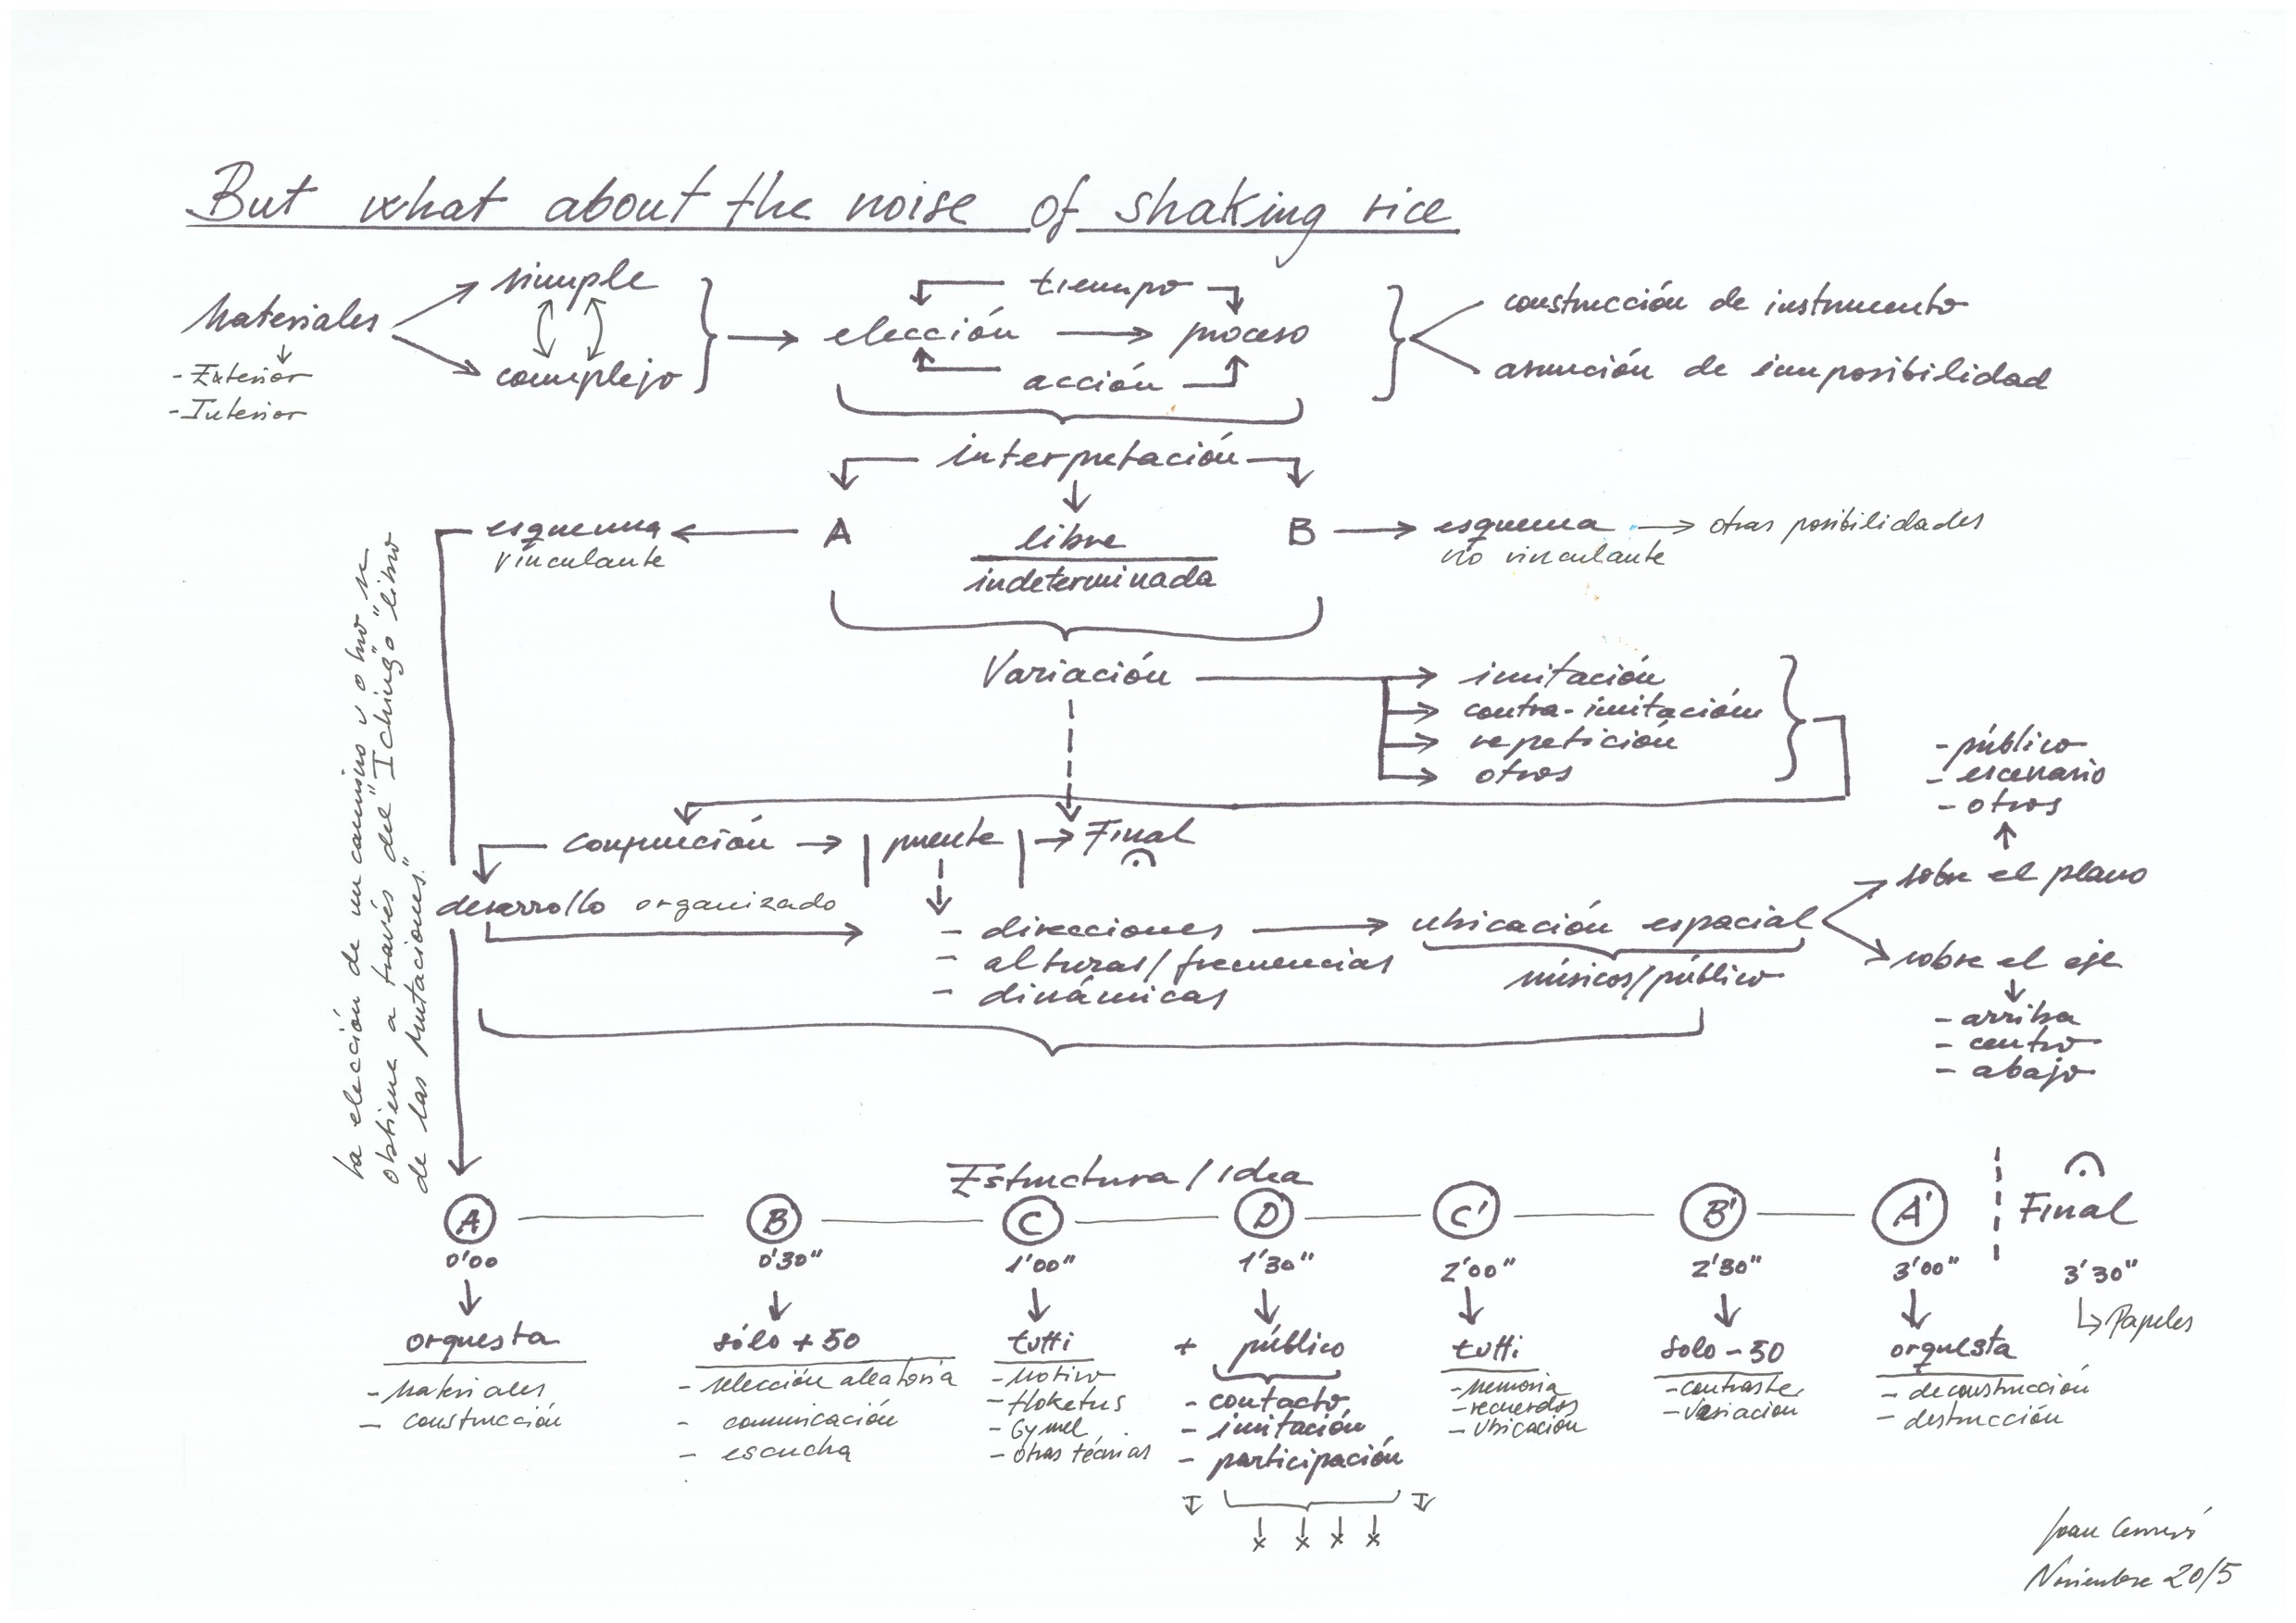 But what about the noise of shaking rice
Materiales
- Exterior
- Interior
simple
complejo
tiempo
elección → proceso
acción
construcción de instrumento
asunción de imposibilidad
interpretación
esquema
vinculante
A
libre
indeterminada
B
esquema → otras posibilidades
no vinculante
la elección de un camino u otro se
obtiene a través del "I ching" o "libro
de las mutaciones."
Variación
imitación
contra-imitación
repetición
otros
conjunción → | puente | → Final
desarrollo organizado
- direcciones
- alturas/frecuencias
- dinámicas
ubicación espacial
músicos/público
- público
- escenario
- otros
sobre el plano
sobre el eje
- arriba
- centro
- abajo
Estructura / idea
A
0'00
orquesta
- Materiales
- construcción
B
0'30"
sólo + 50
- selección aleatoria
- comunicación
- escucha
C
1'00"
tutti
- Motivo
- Hoketus
- Gymel
- otras técnicas
D
1'30"
+ público
- contacto
- imitación
- participación
x x x x
C'
2'00"
tutti
- memoria
- recuerdos
- Ubicación
B'
2'30"
solo - 50
- contraste
- Variación
A'
3'00"
orquesta
- deconstrucción
- destrucción
Final
3'30"
Papeles
Joan
Noviembre 2015